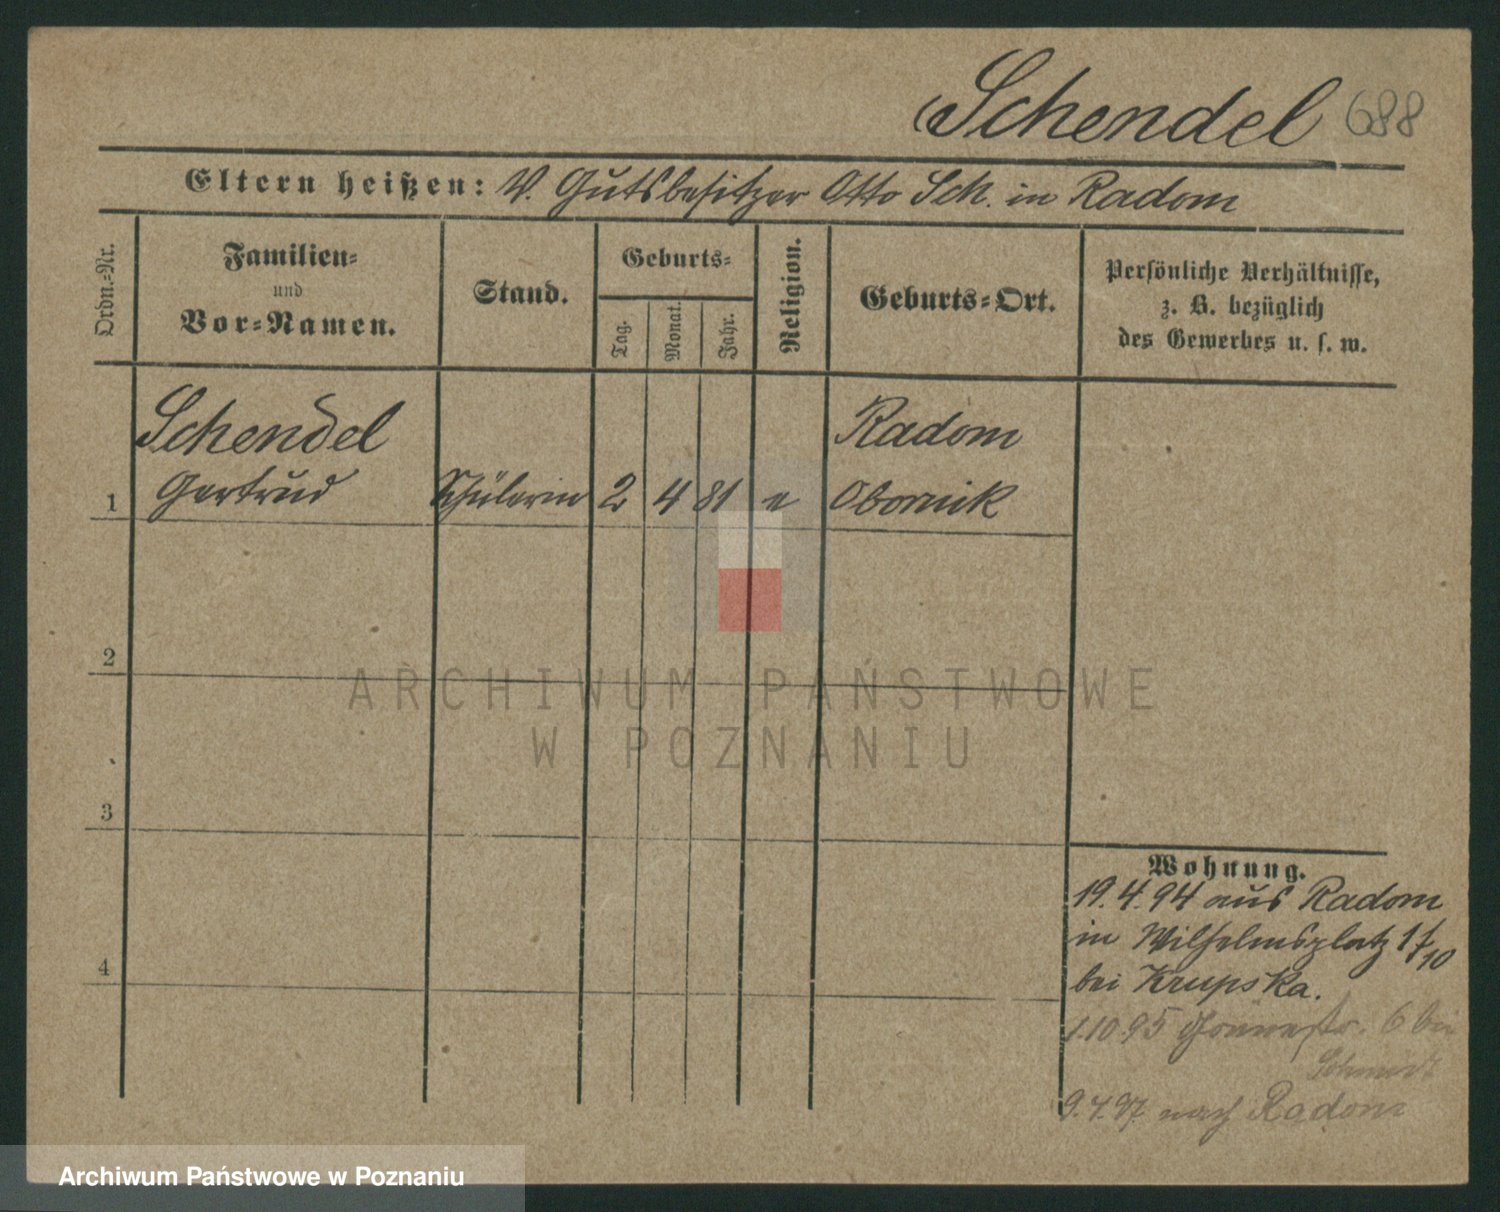 Schendel 688
Eltern heißen: V. Gutsbesitzer Otto Sch. in Radom
Ordn.-Nr.
Familien-
und
Vor-Namen.
Stand.
Geburts-
Tag.
Monat.
Jahr.
Religion.
Geburts-Ort.
Persönliche Verhältnisse,
z. B. bezüglich
des Gewerbes u. s. w.
Schendel Radom
1 Gertrud Schülerin 2 4 81 e Obornik
2
ARCHIWUM PAŃSTWOWE
W POZNANIU
3
4
Wohnung.
19.4.94 aus Radom
in Wilhelmsplatz
bei Krupska.
1.10 95 6 bei
Schmidt
9.4.97 nach Radom
Archiwum Państwowe w Poznaniu